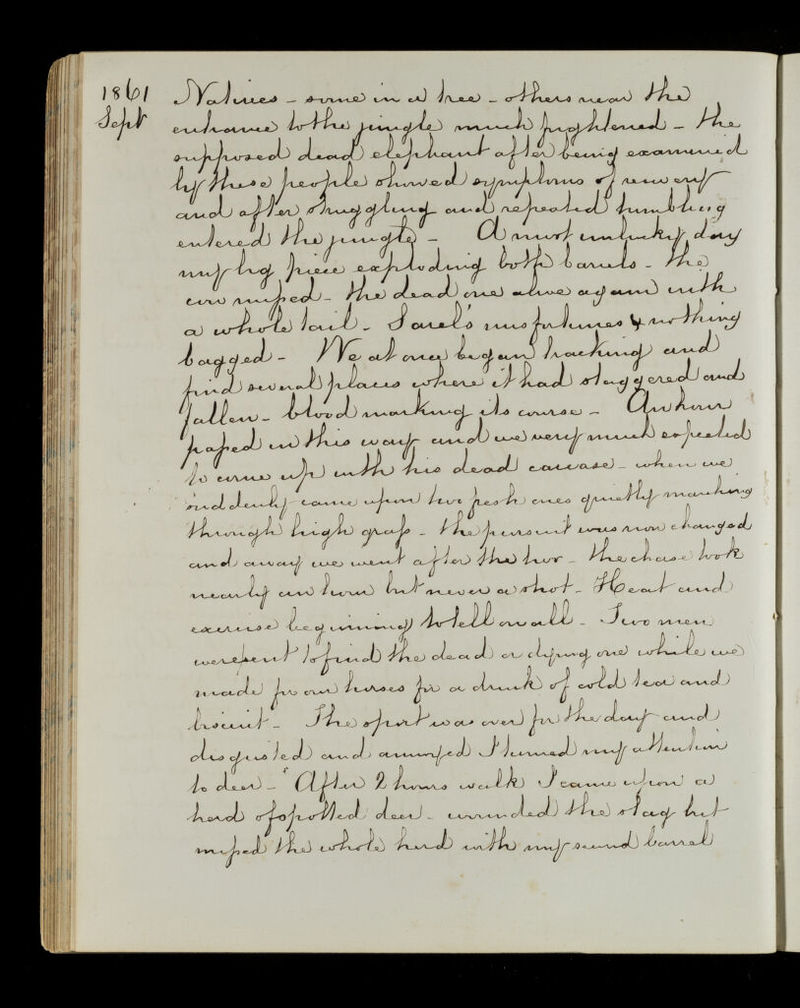 1861
Sept
Natives - some in a tree - others near the
entrance to the jungle much frightened - the
supposed dead elephant after being examined
by these people showed symptoms of recovery
and after struggling and repeated tumbling
entered the jungle - A most unlucky day
my big piece exploding both barrels - the
cow missed - the dead one alive again with
a whole tail - Sarel's misfortunes & nothing
bagged - We at once began tracking and
find several places where it had staggered and
fallen - blood marking its course - An hour
passed in this way and we very much expected
to come up with his dead carcase - when we
suddenly came upon two fresh ones quietly marching
through high grass - the pursuit was now changed
and away we went after the two - the chase took
nearly an hour but never a shot - Heat and
exercise beginning to tell on all - Two men
were sent to find the dead or dying one while we
made for our horses for a drink of cold tea and
biscuit - The sport was over for the day and
disgusted and annoyed I turned my attention
to deer - After 2 hours walk I came upon a
herd of spotted deer - wounded the stag but
missed the whole herd with my second barrel